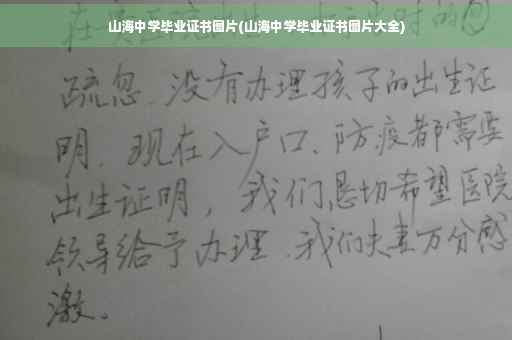 山海中学毕业证书图片(山海中学毕业证书图片大全)
疏忽、没有办理孩子的出生证
明、现在入户口、防疫都需要
出生证明，我们恳切希望医院
领导给予办理、我们夫妻万分感
激。